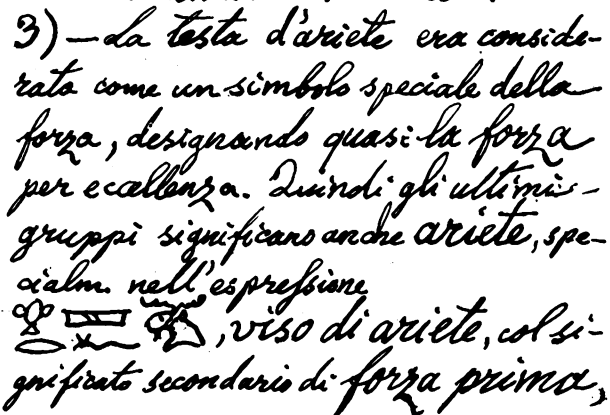 3) — La testa d'ariete era conside-
rata come un simbolo speciale della
forza, designando quasi la forza
per eccellenza. Quindi gli ultimi
gruppi significano anche ariete, spe-
cialm. nell'espressione
, viso di ariete, col si-
gnificato secondario di forza prima,